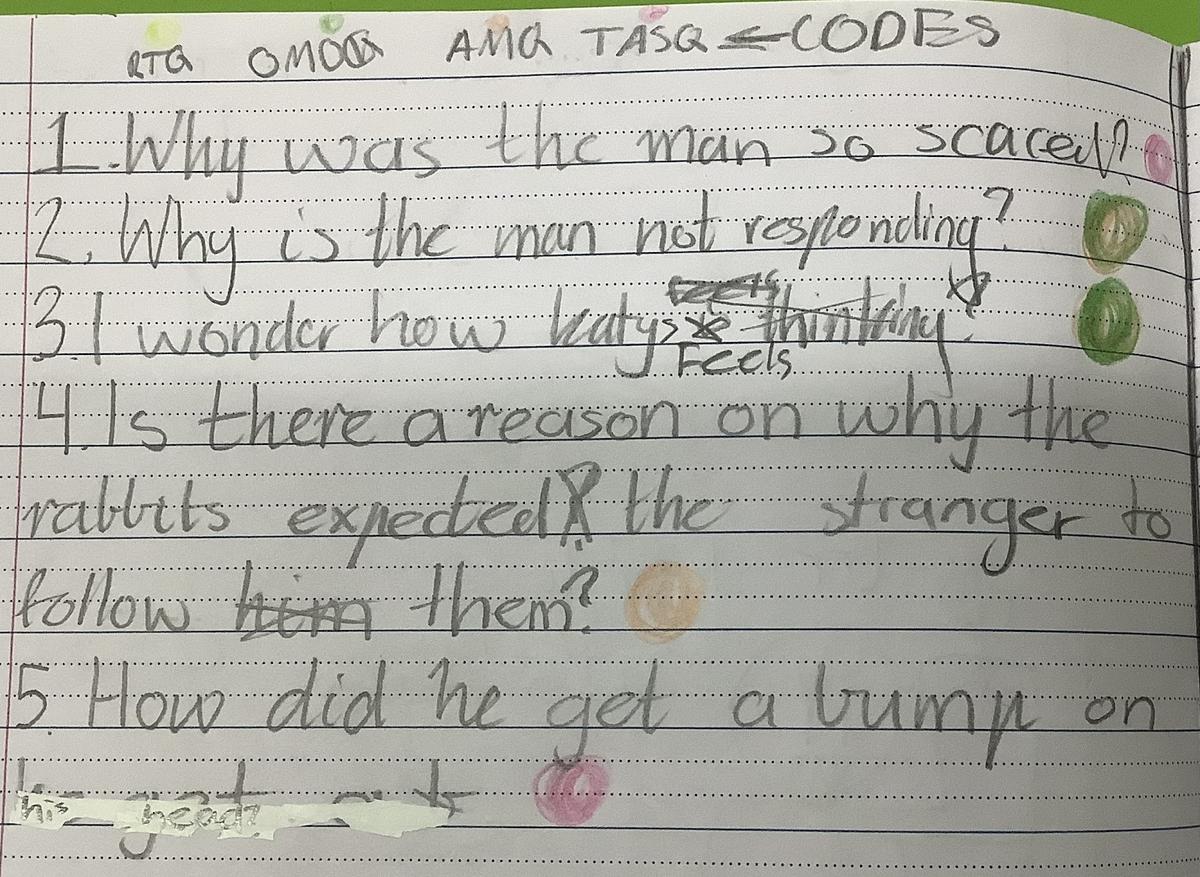 RTQ OMOQ AMQ TASQ ← CODES
1. Why was the man so scared?
2. Why is the man not responding?
3. I wonder how katys Feels
4. Is there a reason on why the
rabbits expected the stranger to
follow him them?
5. How did he get a bump on
his head?